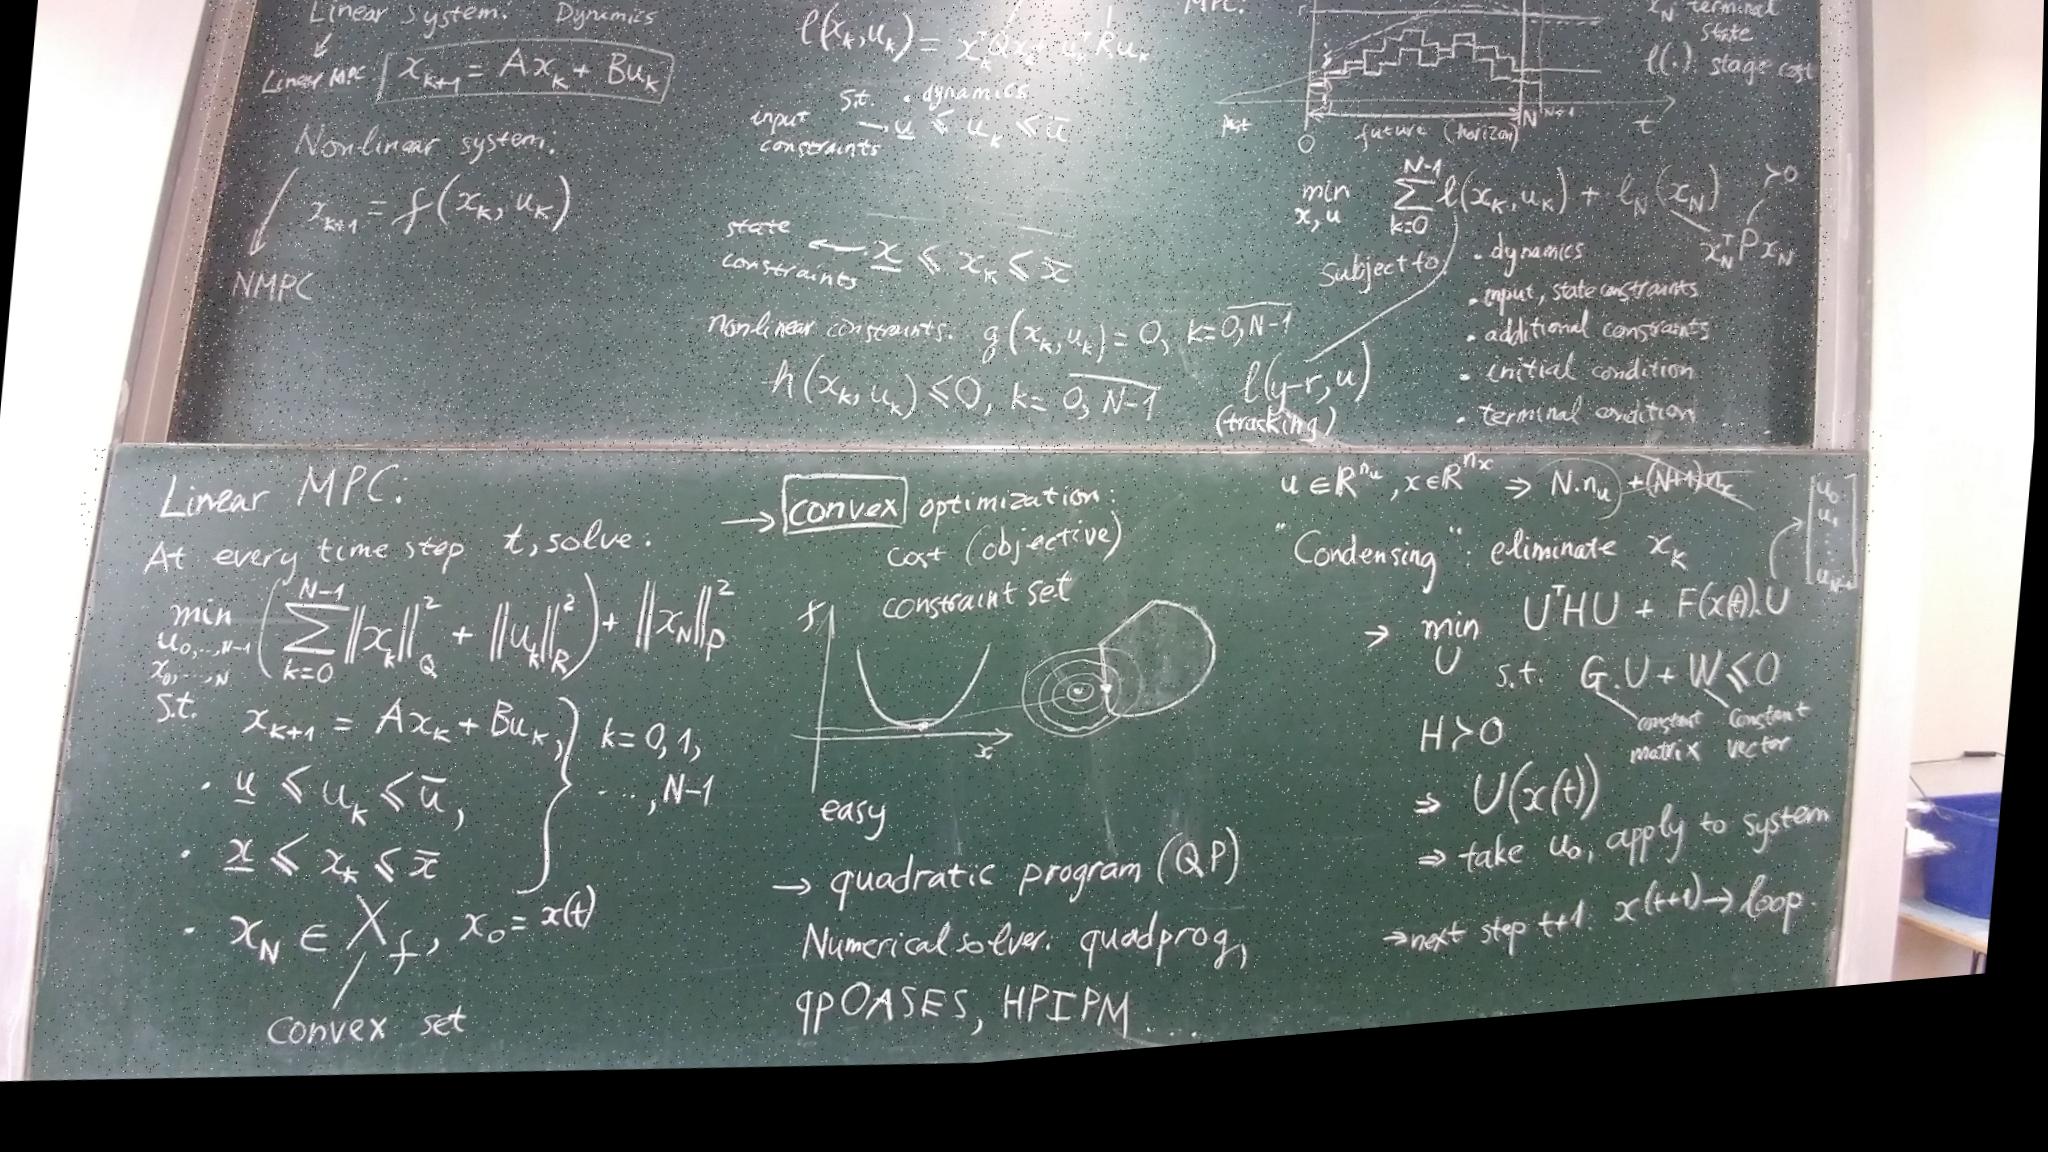 Linear system: Dynamics
Linear MPC x_{k+1} = Ax_k + Bu_k
Nonlinear system:
x_{k+1} = f(x_k, u_k)
NMPC
l(x_k, u_k) = x_k^T Q x_k + u_k^T R u_k
s.t. • dynamics
input constraints → u̲ ≤ u_k ≤ ū
state constraints ← x̲ ≤ x_k ≤ x̄
nonlinear constraints: g(x_k, u_k) = 0, k = \overline{0, N-1}
h(x_k, u_k) ≤ 0, k = \overline{0, N-1}
MPC:
r
past 0 future (horizon) N N+1 t
x_N terminal
state
l(.) stage cost
min_{x,u} \sum_{k=0}^{N-1} l(x_k, u_k) + l_N(x_N) >0
x_N^T P x_N
subject to • dynamics
• input, state constraints
• additional constraints
• initial condition
• terminal condition
l(y-r, u)
(tracking)
Linear MPC:
At every time step t, solve:
min_{u_0,...,N-1 x_0,...,N} ( \sum_{k=0}^{N-1} ||x_k||_Q^2 + ||u_k||_R^2 ) + ||x_N||_P^2
s.t. x_{k+1} = Ax_k + Bu_k, } k = 0,1,
• u̲ ≤ u_k ≤ ū, ..., N-1
• x̲ ≤ x_k ≤ x̄
• x_N ∈ X_f, x_0 = x(t)
convex set
→ convex optimization:
cost (objective)
constraint set
f
x
easy
→ quadratic program (QP)
Numerical solver: quadprog,
qpOASES, HPIPM ...
u ∈ R^{n_u}, x ∈ R^{n_x} ⇒ N.n_u + (N+1)n_x
"Condensing": eliminate x_k
[u_0 u_1 ⋮ u_{N-1}]
→ min_U U^T H U + F(x(t)).U
s.t. G.U + W ≤ 0
constant matrix
constant vector
H ≻ 0
⇒ U(x(t))
⇒ take u_0, apply to system
⇒ next step t+1: x(t+1) → loop.